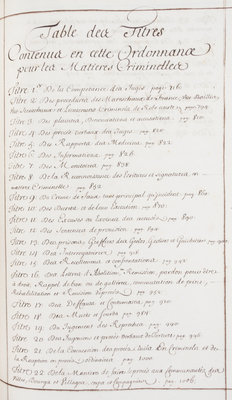 Table des Titres
Contenus en cette Ordonnance
pour les Matieres Criminelles
Titre 1er De la Competence des Juges pag. 760
Titre 2. Des procedures des Marechaux de France, des Baillis,
Titre 3. Des plaintes, Denonciations et accusations pag.
Titre 4. Des procés verbaux des Juges pag. 820
Titre 5. Des Rapports des Medecins pag. 822
Titre 6. Des Informations pag. 826
Titre 7. Des Monitoires pag. 838
Titre 8. De la Reconnoissance des Ecritures et signatures, en
matiere Criminelle pag. 852
Titre 9. Du Crime de Faux, tant principal qu'incident pag. 860
Titre 10. Des Decrets et de leur Execution pag. 880
Titre 11. Des Excuses ou Exoines des accusés pag. 890
Titre 12. Des Sentences de provision pag. 894
Titre 13. Des prisons, Greffiers des Geoles, Geoliers et Guichetiers pag.
Titre 14. Des Interrogatoires pag. 916
Titre 15. Des Recolemens et confrontations pag. 942
Titre 16. Des Lettres d'Abolition, Remission, pardon, pour ester à
droit, Rappel de ban ou de galeres, commutation de peine,
Rehabilitation et Revision de procés pag. 952
Titre 17. Des Deffauts et Contumaces pag.
Titre 18. Des Muets et Sourds pag. 984
Titre 19. Des Jugemens et procés verbaux de Torture pag.
Titre 21. De la Conversion des procés civils En Criminels et de
la Reception en procés ordinaires pag. 1000
Titre 22. De la Maniere de faire le procés aux Communautez des
Villes, Bourgs et Villages, corps et Compagnies pag. 1006.